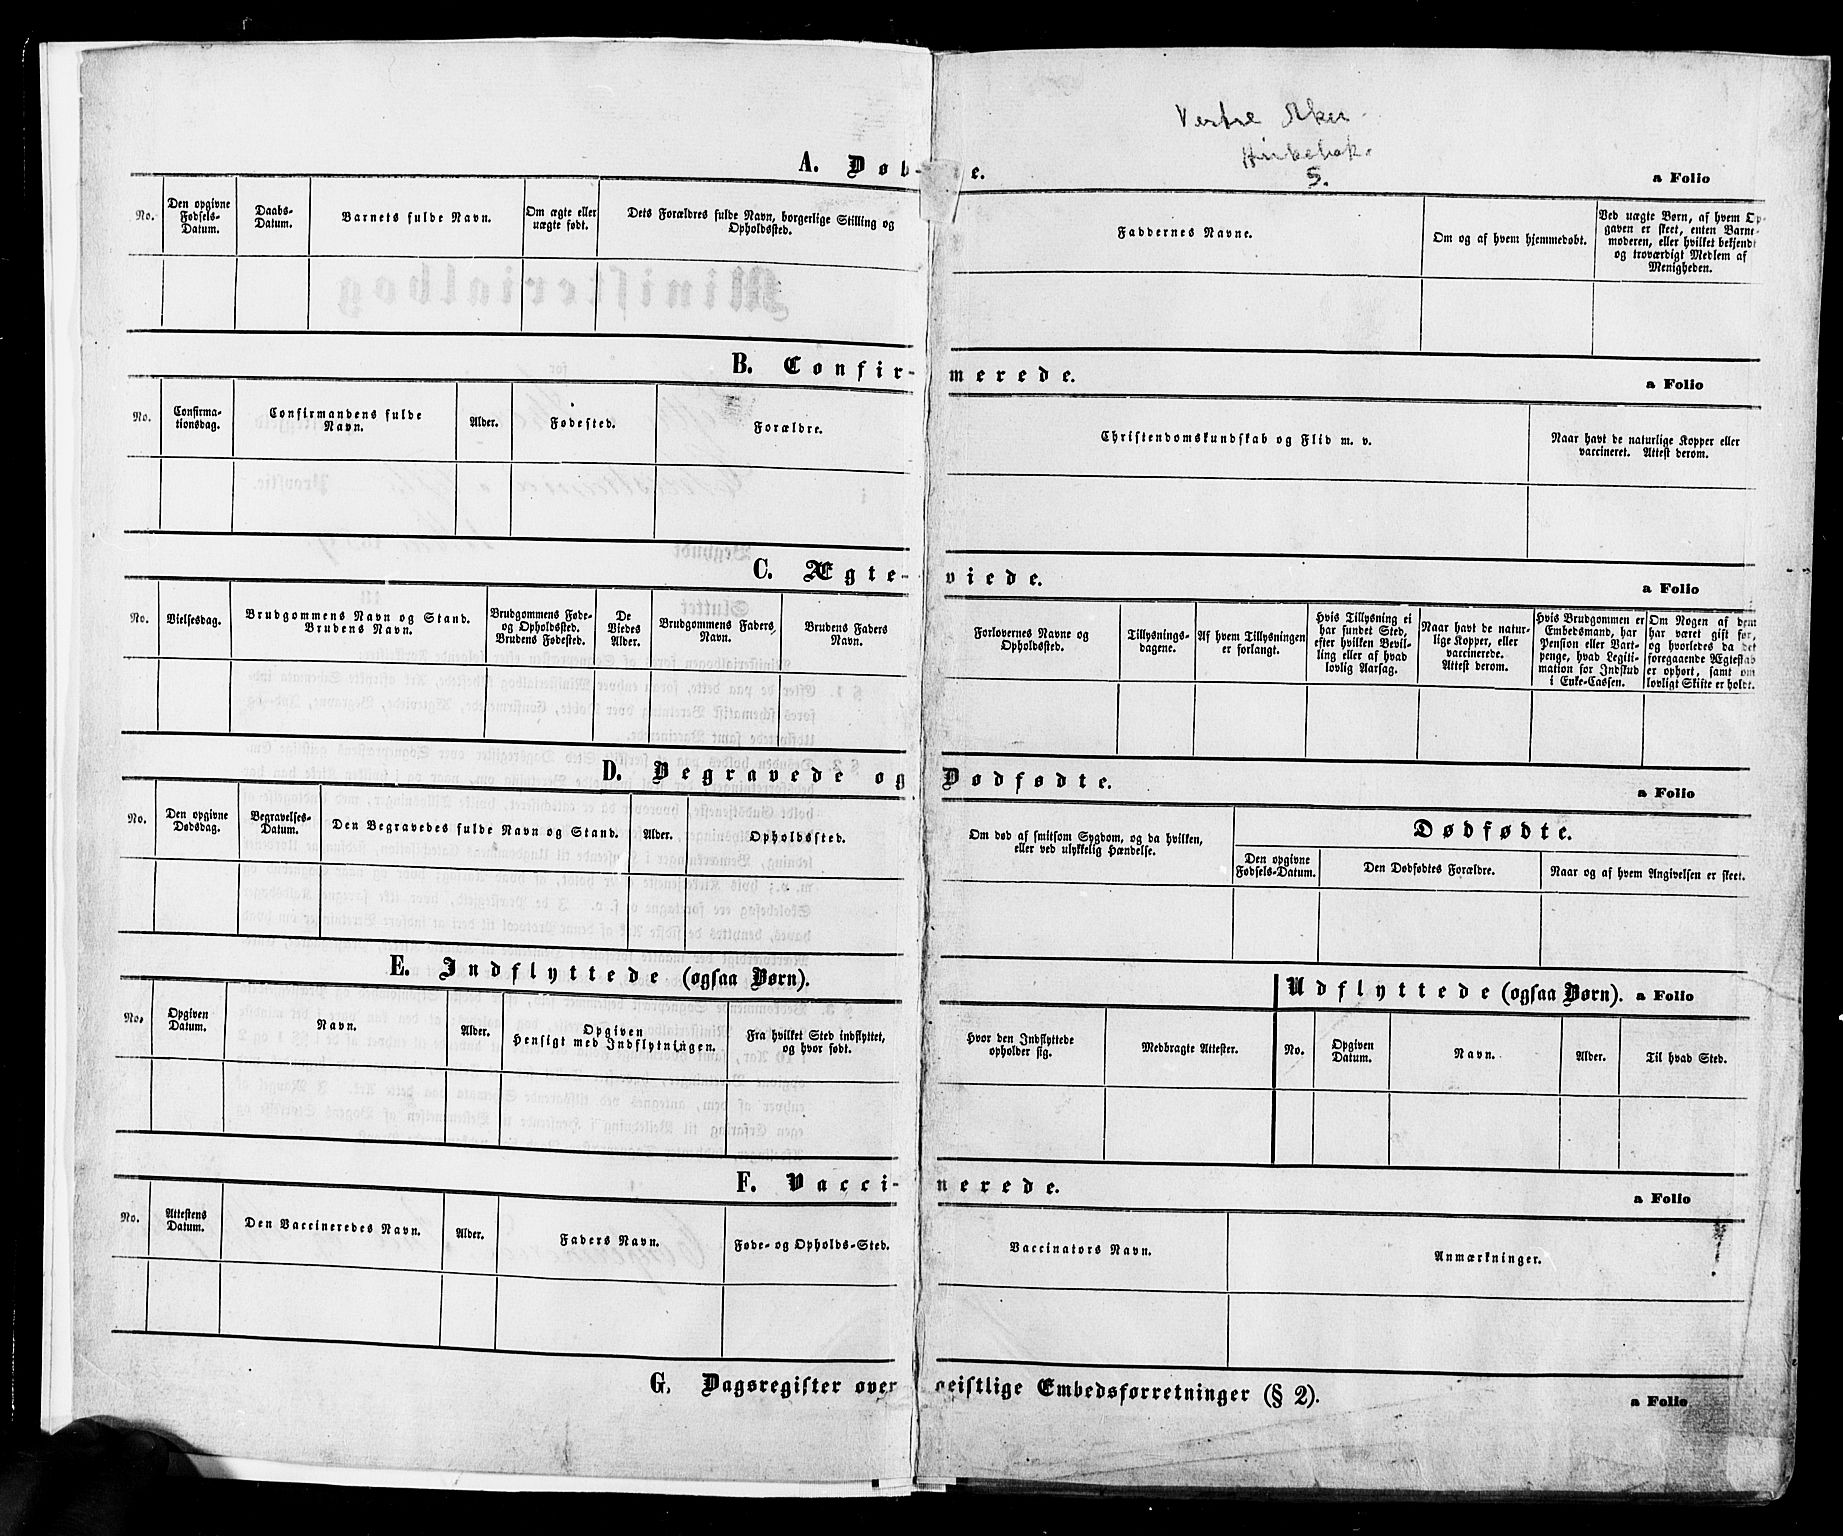 Vestre Aker
Kirkebok.
5.
A. Døbte.
a Folio
No.
Den opgivne
Fødsels-
Datum.
Daabs-
Datum.
Barnets fulde Navn.
Om ægte eller
uægte født.
Dets Forældres fulde Navn, borgerlige Stilling og
Opholdssted.
Faddernes Navne.
Om og af hvem hjemmedøbt.
Ved uægte Børn, af hvem Op-
gaven er skeet, enten Barne-
moderen, eller hvilket bekjendt
og troværdigt Medlem af
Menigheden.
B. Confirmerede.
a Folio
No.
Confirma-
tionsdag.
Confirmandens fulde
Navn.
Alder.
Fødested.
Forældre.
Christendomskundskab og Flid m. v.
Naar havt de naturlige Kopper eller
vaccineret. Attest derom.
C. Ægteviede.
a Folio
No.
Vielsesdag.
Brudgommens Navn og Stand.
Brudens Navn.
Brudgommens Føde-
og Opholdssted.
Brudens Fødested.
De
Viedes
Alder.
Brudgommens Faders
Navn.
Brudens Faders
Navn.
Forlovernes Navne og
Opholdssted.
Tillysnings-
dagene.
Af hvem Tillysningen
er forlangt.
Hvis Tillysning ei
har fundet Sted,
efter hvilken Bevil-
ling eller af hvad
lovlig Aarsag.
Naar havt de natur-
lige Kopper, eller
vaccinerede.
Attest derom.
Hvis Brudgommen er
Embedsmand, har
Pension eller Vart-
penge, hvad Legiti-
mation for Indskud
i Enke-Cassen.
Om Nogen af dem
har været gift før,
og hvorledes da det
foregaaende Ægteskab
er ophørt, samt om
lovligt Skifte er holdt.
D. Begravede og Dødfødte.
a Folio
No.
Den opgivne
Dødsdag.
Begravelses-
Datum.
Den Begravedes fulde Navn og Stand.
Alder.
Opholdssted.
Om død af smitsom Sygdom, og da hvilken,
eller ved ulykkelig Hændelse.
Dødfødte.
Den opgivne
Fødsels-Datum.
Den Dødfødtes Forældre.
Naar og af hvem Angivelsen er skeet.
E. Indflyttede (ogsaa Børn).
Udflyttede (ogsaa Børn).
a Folio
No.
Opgiven
Datum.
Navn.
Alder.
Opgiven
Hensigt med Indflytningen.
Fra hvilket Sted indflyttet,
og hvor født.
Hvor den Indflyttede
opholder sig.
Medbragte Attester.
No.
Opgiven
Datum.
Navn.
Alder.
Til hvad Sted.
F. Vaccinerede.
a Folio
No.
Attestens
Datum.
Den Vaccineredes Navn.
Alder.
Faders Navn.
Føde- og Opholds-Sted.
Vaccinators Navn.
Anmærkninger.
G. Dagsregister over geistlige Embedsforretninger (§ 2).
a Folio